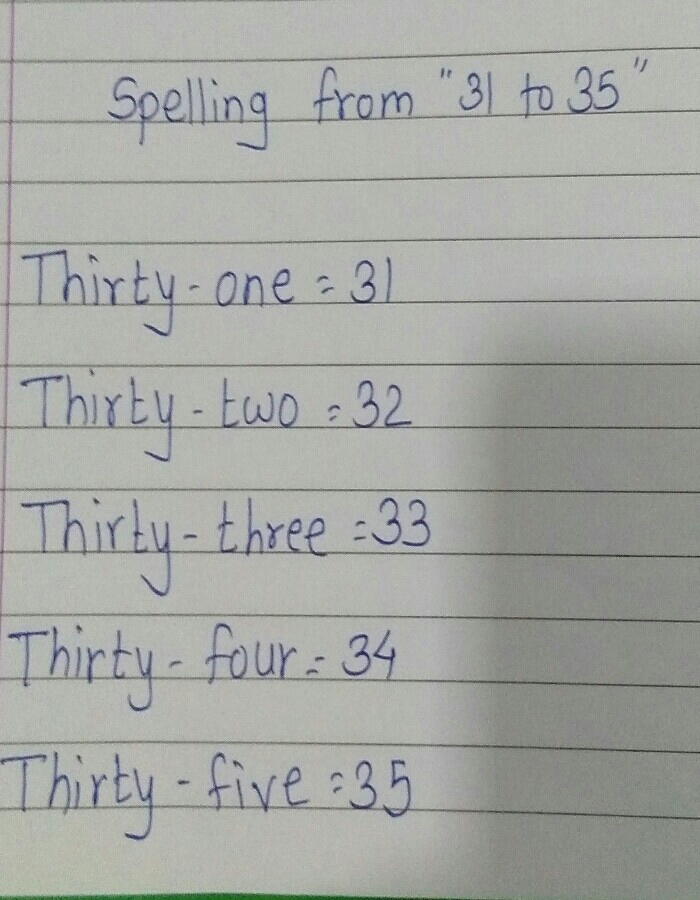 Spelling from "31 to 35"
Thirty-one = 31
Thirty-two = 32
Thirty-three = 33
Thirty-four = 34
Thirty-five = 35